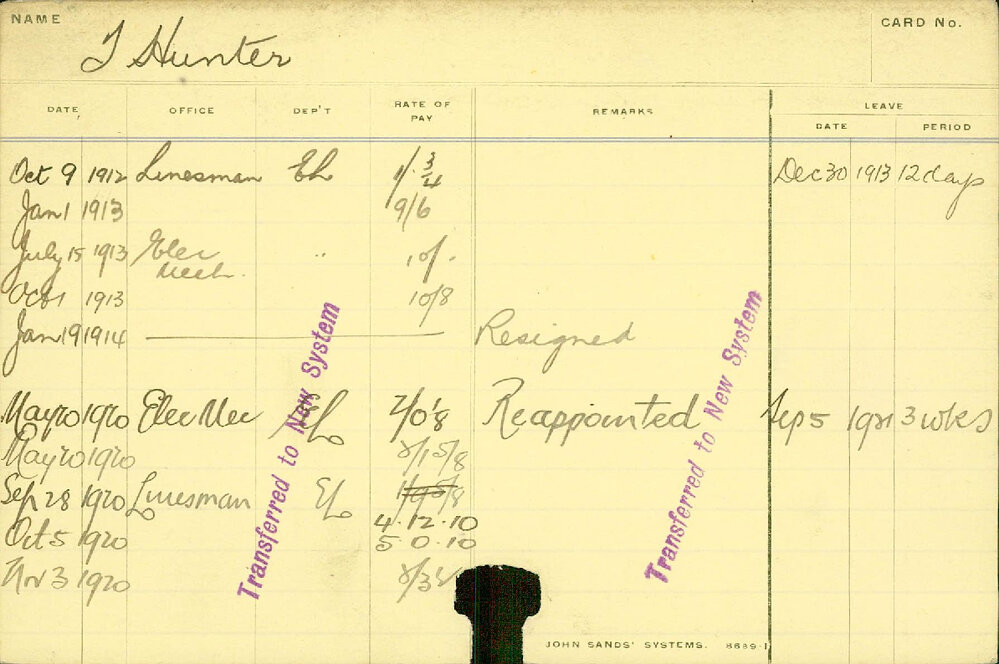 NAME
T Hunter
CARD No.
DATE OFFICE DEP'T RATE OF PAY REMARKS LEAVE
DATE PERIOD
Oct 9 1912 Linesman EL 1/. 3/4 Dec 30 1913 12 days
Jan 1 1913 9/6
July 15 1913 Elec Mech. " 10/-
Oct 1 1913 10/8
Jan 19 1914 Resigned
May 20 1920 Elec Mec EL Reappointed Sep 5 1921 3 wks
May 20 1920
Sep 28 1920 Linesman EL
4.12.10
Oct 5 1920 5.0.10
Nov 3 1920
Transferred to New System
Transferred to New System
JOHN SANDS' SYSTEMS. 8689-1